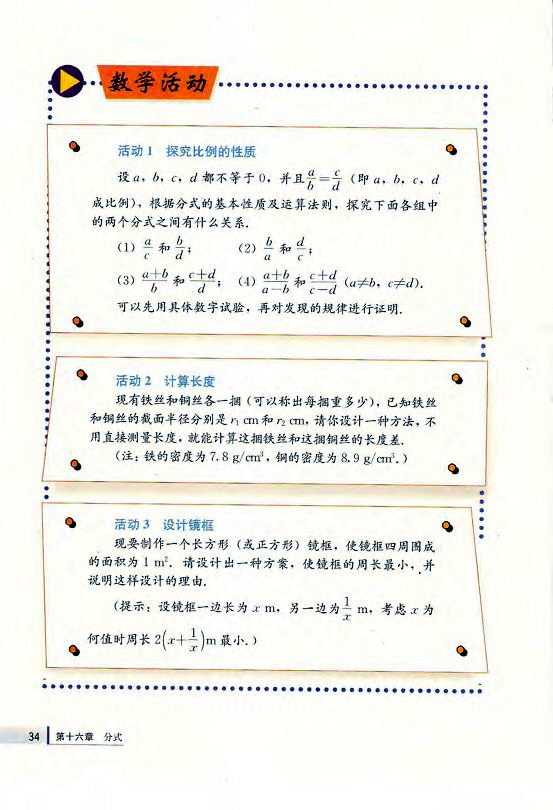 数学活动
活动1 探究比例的性质
设a，b，c，d都不等于0，并且a/b=c/d（即a，b，c，d
成比例），根据分式的基本性质及运算法则，探究下面各组中
的两个分式之间有什么关系.
(1) a/c和b/d； (2) b/a和d/c；
(3) (a+b)/b和(c+d)/d； (4) (a+b)/(a−b)和(c+d)/(c−d) (a≠b，c≠d).
可以先用具体数字试验，再对发现的规律进行证明.
活动2 计算长度
现有铁丝和铜丝各一捆（可以称出每捆重多少），已知铁丝
和铜丝的截面半径分别是r₁ cm和r₂ cm，请你设计一种方法，不
用直接测量长度，就能计算这捆铁丝和这捆铜丝的长度差.
（注：铁的密度为7.8 g/cm³，铜的密度为8.9 g/cm³.）
活动3 设计镜框
现要制作一个长方形（或正方形）镜框，使镜框四周围成
的面积为1 m². 请设计出一种方案，使镜框的周长最小，并
说明这样设计的理由.
（提示：设镜框一边长为x m，另一边为1/x m，考虑x为
何值时周长2(x+1/x)m最小.）
34 第十六章 分式